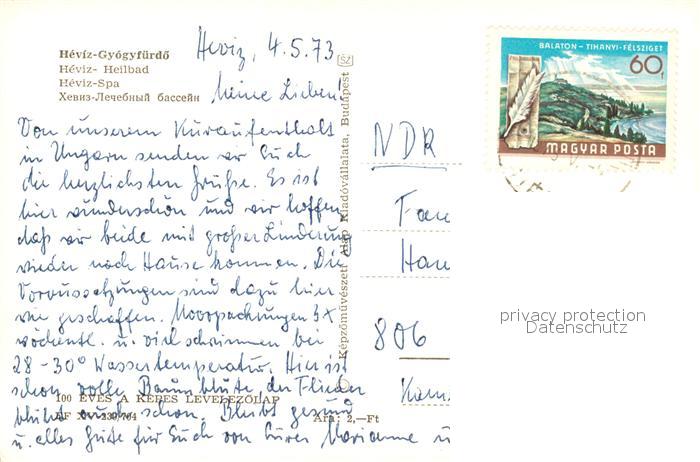 Hévíz-Gyógyfürdő
Héviz- Heilbad
Héviz-Spa
Хевиз-Лечебный бассейн
Heviz, 4.5.73
Meine Lieben!
Von unserem Kuraufenthalt
in Ungarn senden wir Euch
die herzlichsten Grüße. Es ist
hier wunderschön und wir hoffen
daß wir beide mit großer Linderung
wieder nach Hause kommen. Die
Voraussetzungen sind dazu hier
wie geschaffen. Moorpackungen 3x
wöchentl. u. viel schwimmen bei
28-30° Wassertemperatur. Hier ist
schon volle Baumblüte, der Flieder
blüht auch schon. Bleibt gesund
u. alles Gute für Euch von Eurer Marianne u
100 ÉVES A KÉPES LEVELEZŐLAP
Ára: 2,—Ft
Képzőművészeti Alap Kiadóvállalata, Budapest
SZ
NDR
Ham
806
BALATON - TIHANYI-FÉLSZIGET
60f
MAGYAR POSTA
privacy protection
Datenschutz